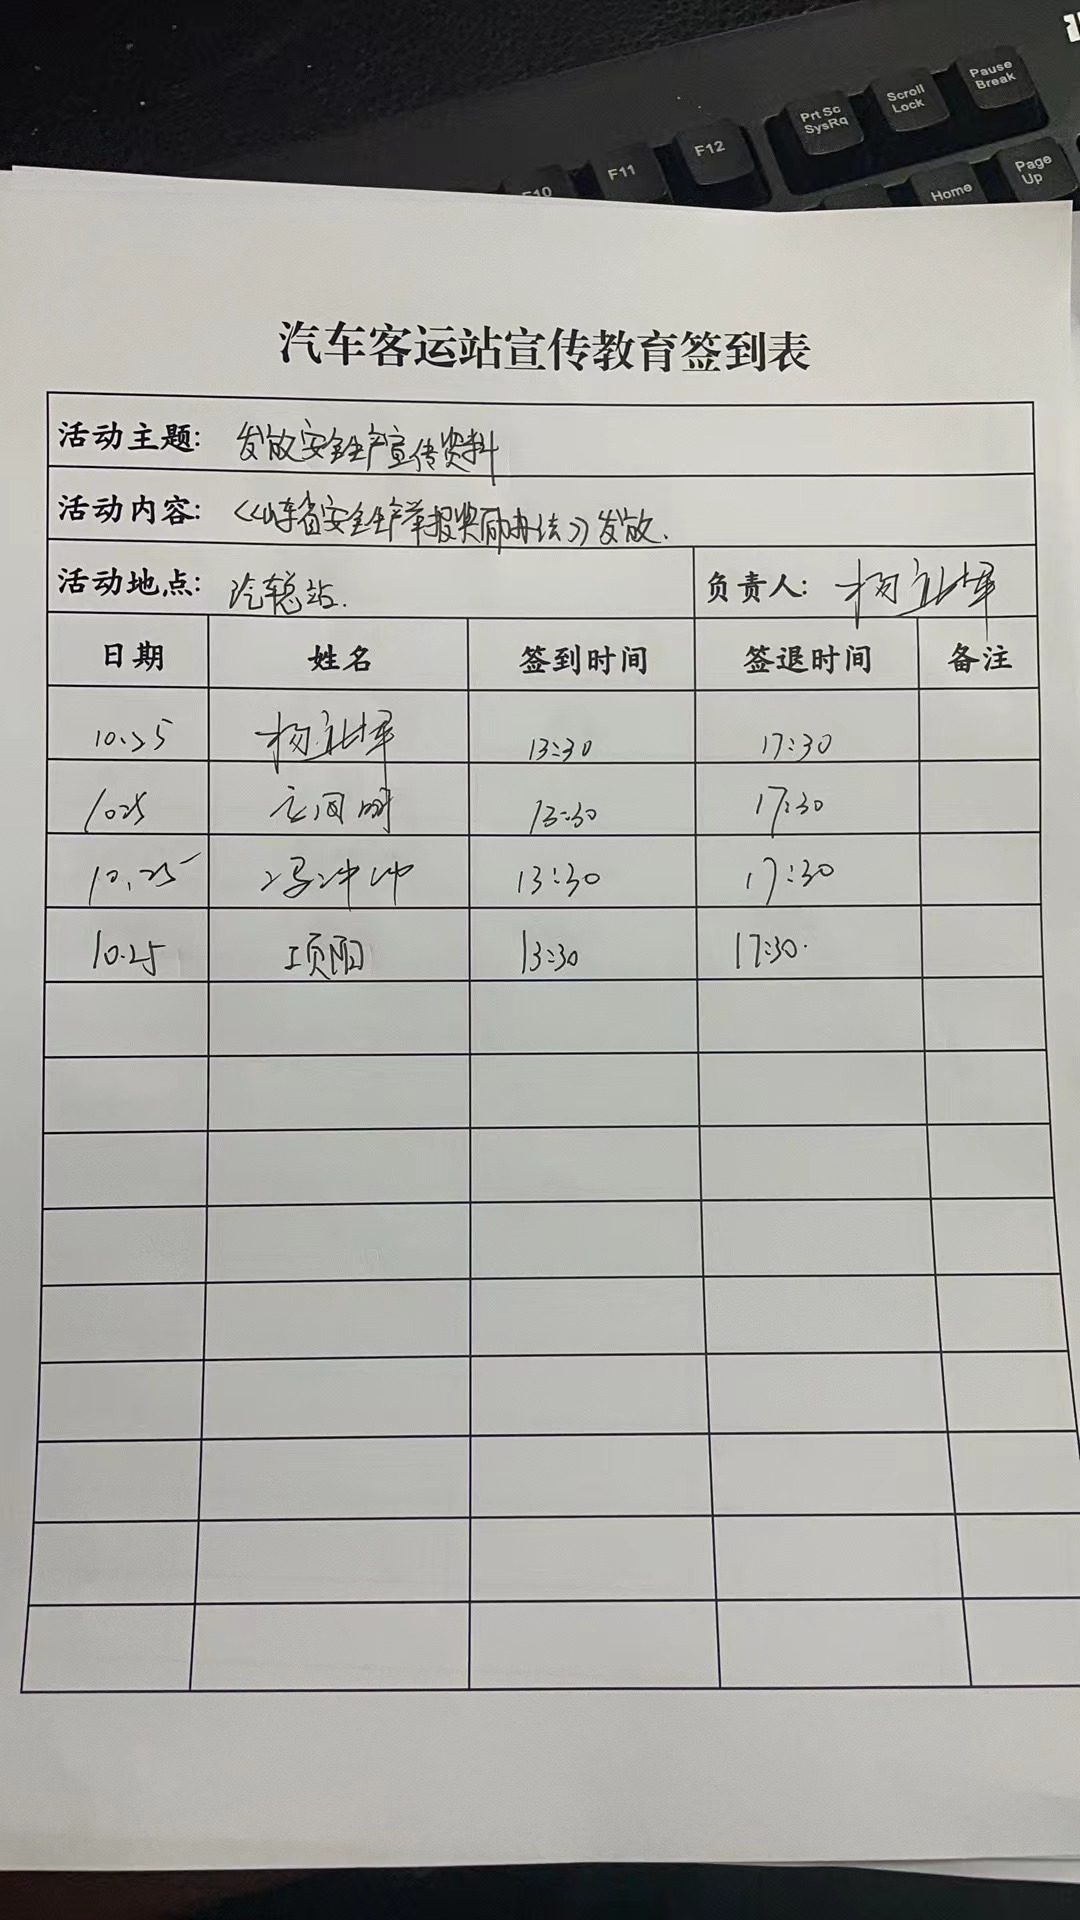 Pause
Break
Scroll
Lock
Prt Sc
SysRq
F12
F11
F10
Page
Up
Home
汽车客运站宣传教育签到表
活动主题: 发放安全生产宣传资料
活动内容: 《山东省安全生产举报奖励办法》发放.
活动地点: 汽车总站. 负责人: 杨
日期 姓名 签到时间 签退时间 备注
10.25 杨 13:30 17:30
1025 13:30 17:30
10.25 冯冲冲 13:30 17:30
10.25 项阳 13:30 17:30.